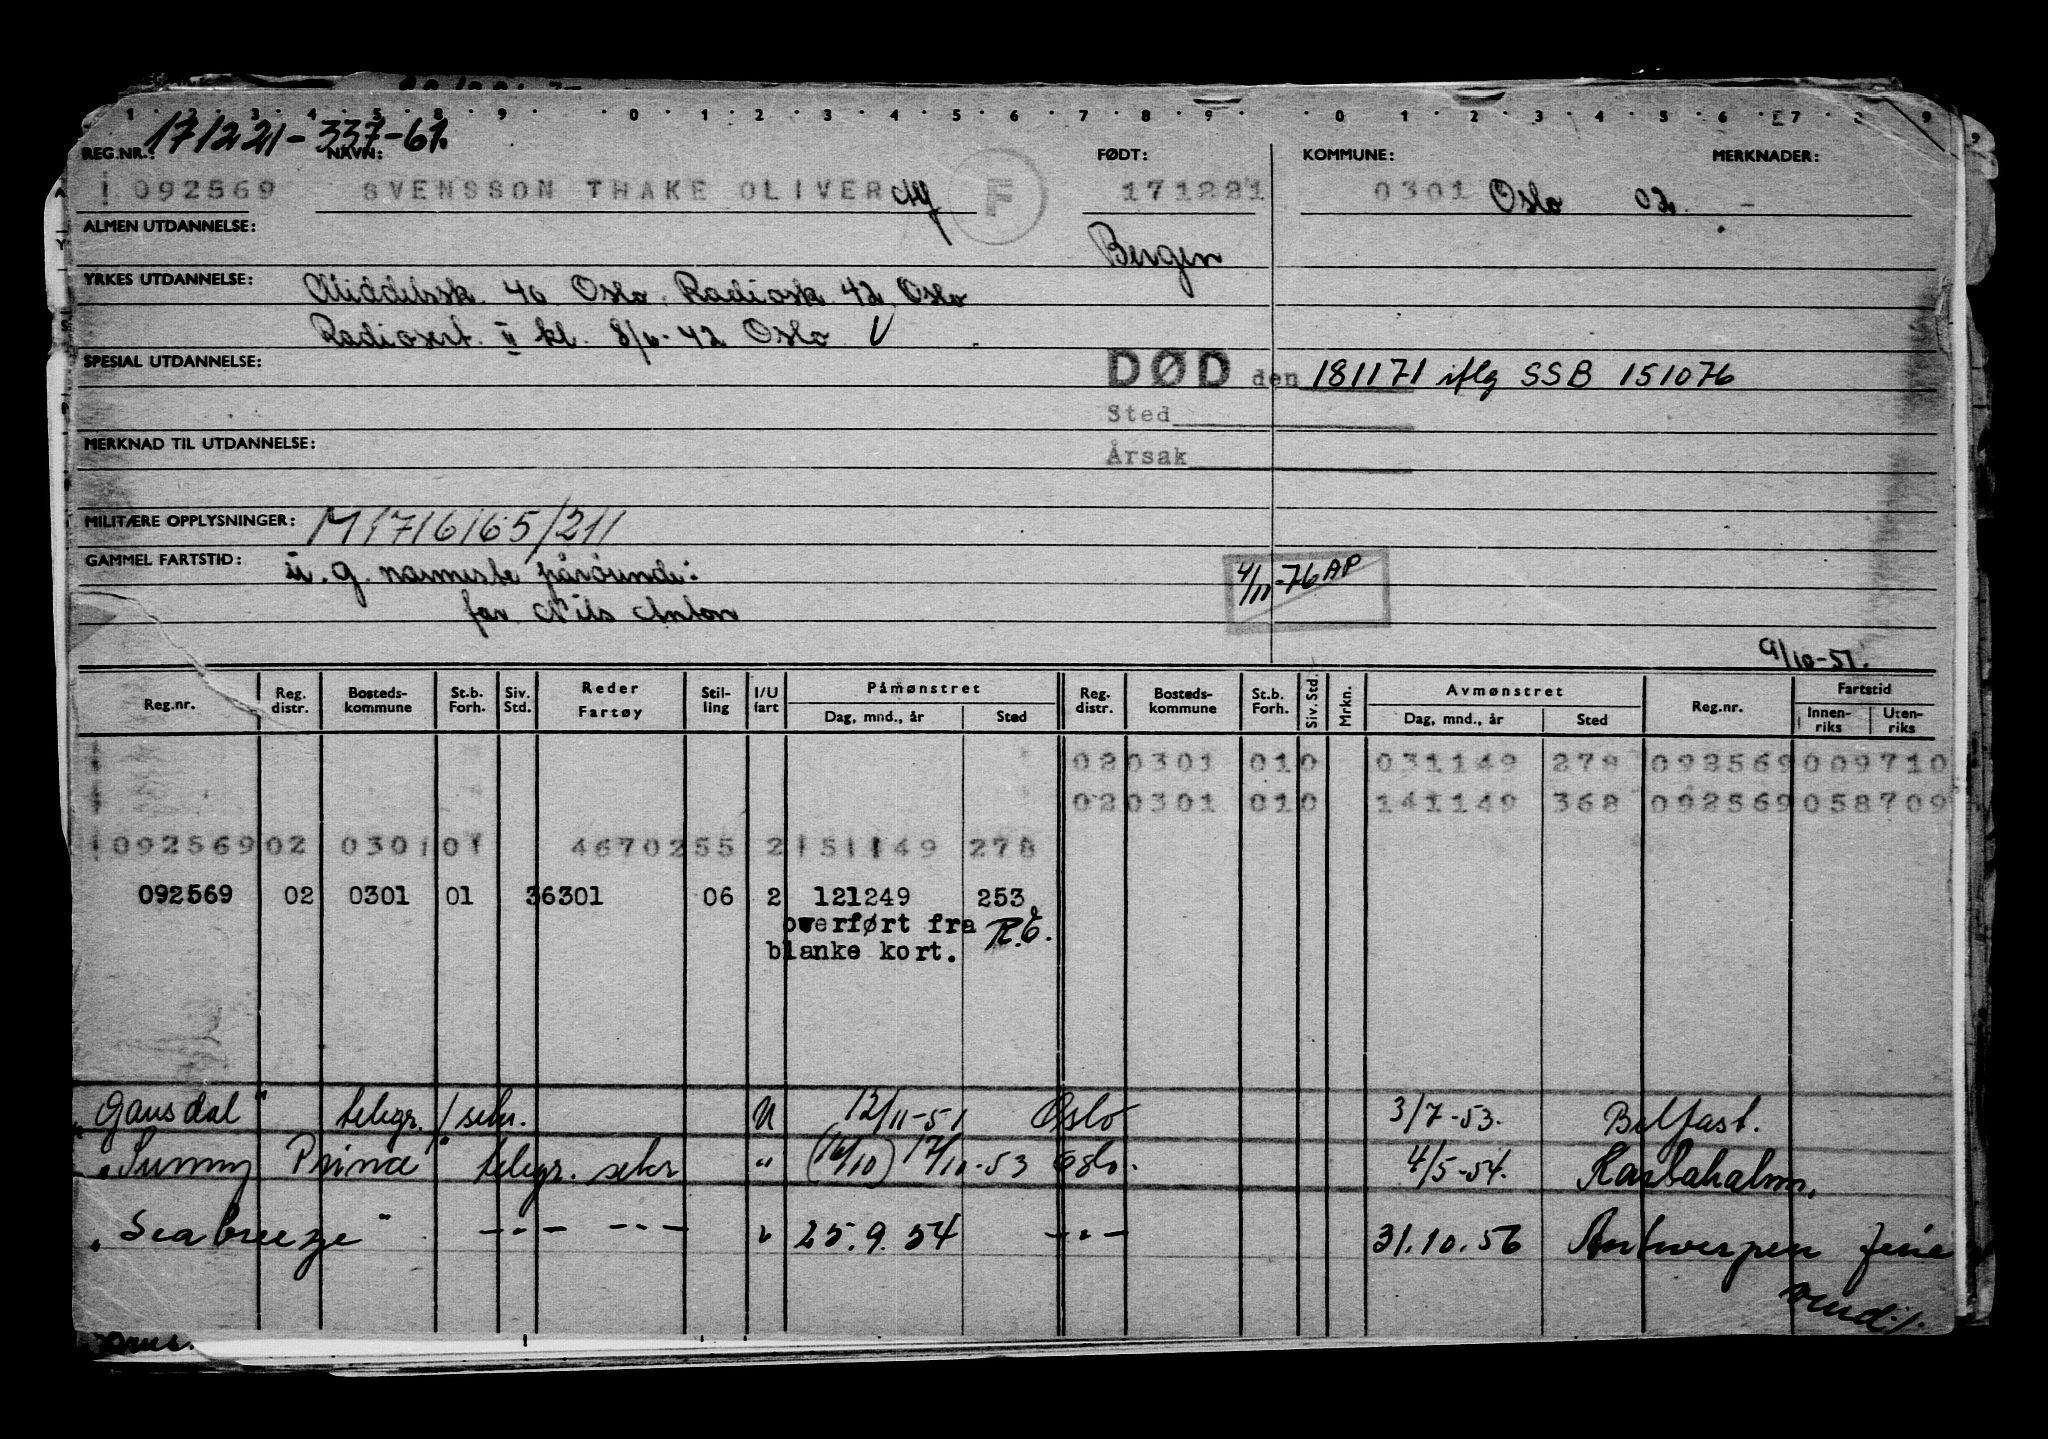 1 2 3 4 5 8 9 0 1 2 3 4 5 6 7 8 9 0 1 2 3 4 5 6 7 9
171221-337-61.
REG.NR.: NAVN: FØDT: KOMMUNE: MERKNADER:
092569 SVENSSON THAKE OLIVER F 171221 0301 Oslo 02. -
ALMEN UTDANNELSE: Bergen
YRKES UTDANNELSE: Middelssk. 40 Oslo, Radiosk 42, Oslo
Radiosert. II kl. 8/6-42 Oslo V
SPESIAL UTDANNELSE: DØD den 181171 iflg SSB 151076
Sted
MERKNAD TIL UTDANNELSE: Årsak
MILITÆRE OPPLYSNINGER: M1716165/211
GAMMEL FARTSTID: u. g. nærmeste pårørende: 4/11-76 AP
far Nils Anton
9/10-51.
Reg.nr. Reg. distr. Bosteds- kommune St.b. Forh. Siv. Std. Reder Fartøy Stil- ling I/U fart Påmønstret Dag, mnd., år Sted Reg. distr. Bosteds- kommune St.b. Forh. Siv. Std. Mrkn. Avmønstret Dag, mnd., år Sted Reg.nr. Fartstid Innen- riks Uten- riks
02 0301 01 0 031149 278 092569 009710
02 0301 01 0 141149 368 092569 058709
092569 02 0301 01 46702 55 2 151149 278
092569 02 0301 01 36301 06 2 121249 253
overført fra R.E.
blanke kort.
"Gausdal" telegr./sekr. U 12/11-51 Oslo 3/7-53. Belfast.
"Sunny Prince" telegr. sekr " (16/10) 17/10-53 Oslo. 4/5-54. Karlshalm.
"Seabreeze" -"- -"- " 25.9.54 -"- 31.10.56 Antwerpen ferie